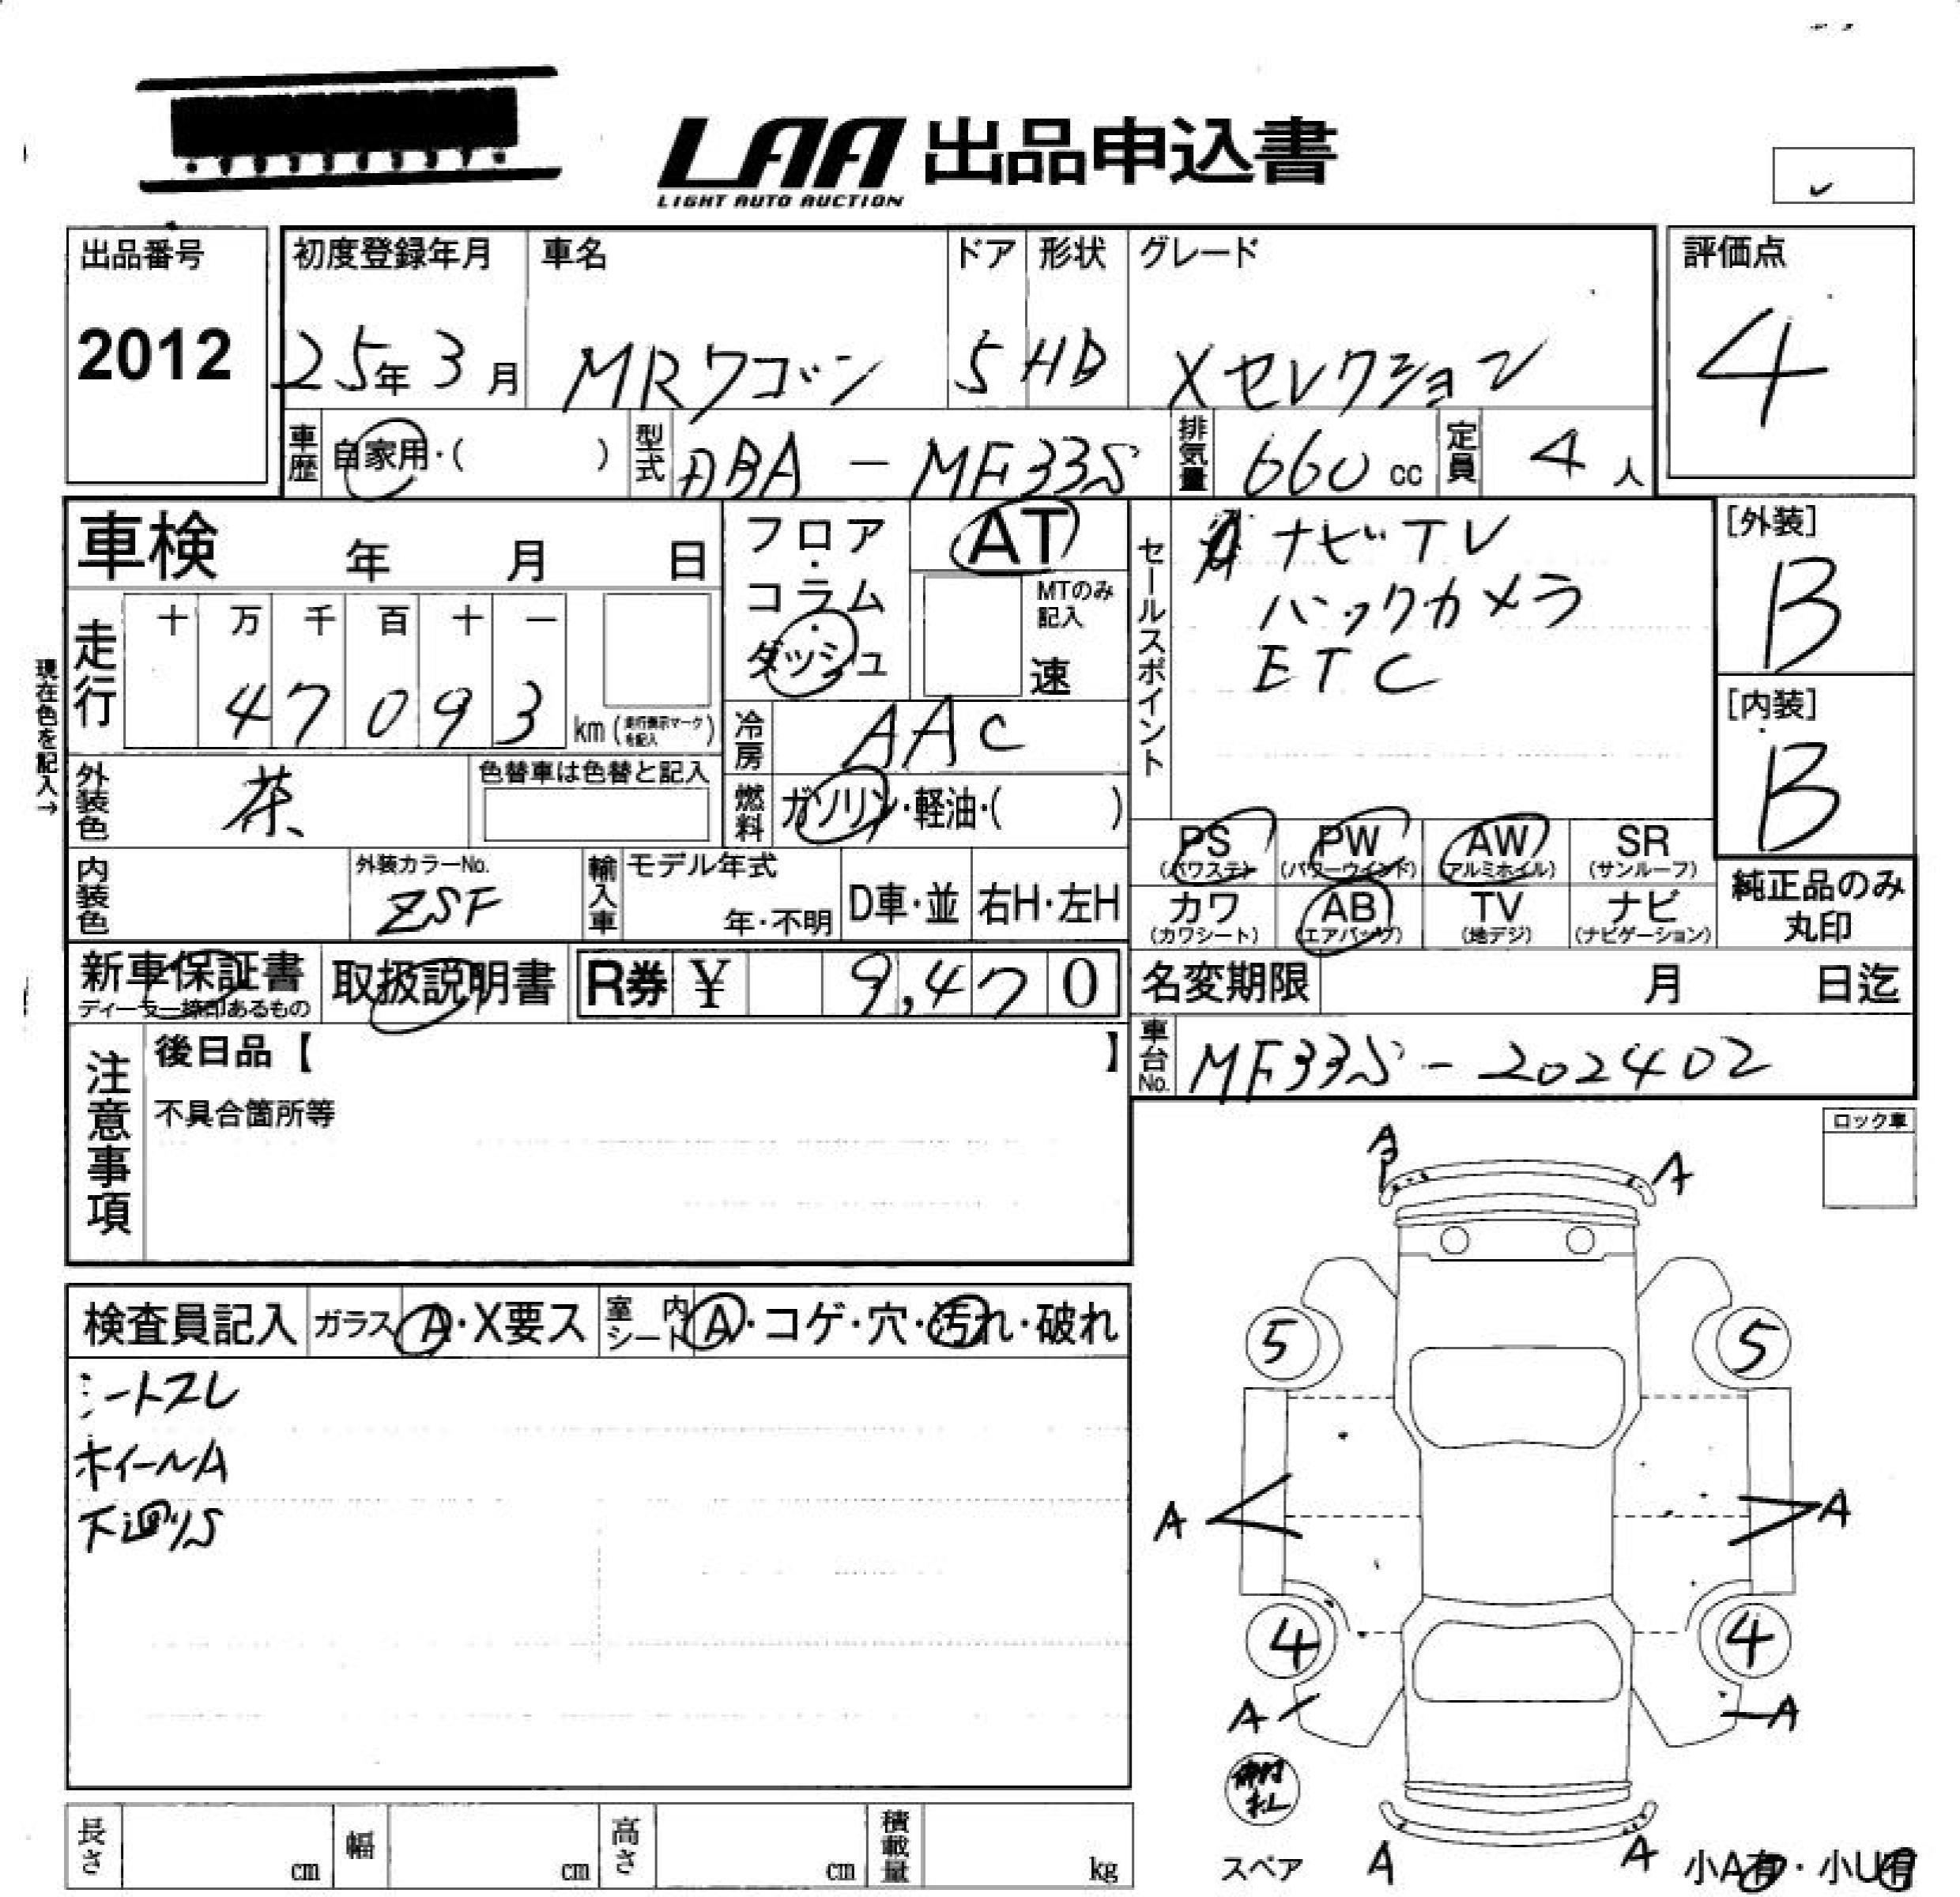 LAA 出品申込書
LIGHT AUTO AUCTION
出品番号
2012
初度登録年月
25年 3月
車名
MRワゴン
ドア
5
形状
HB
グレード
Xセレクション
評価点
4
車歴 自家用・( )
型式 DBA - MF33S
排気量 660 cc
定員 4 人
車検 年 月 日
フロア・コラム・ダッシュ
AT
MTのみ記入
速
セールスポイント
ナビTV
バックカメラ
ETC
[外装]
B
[内装]
B
現在色を記入→
走行
十 万 千 百 十 一
4 7 0 9 3 km (走行表示マークを記入)
冷房 AAC
外装色 茶
色替車は色替と記入
燃料 ガソリン・軽油・( )
PS (パワステ)
PW (パワーウインド)
AW (アルミホイル)
SR (サンルーフ)
カワ (カワシート)
AB (エアバッグ)
TV (地デジ)
ナビ (ナビゲーション)
純正品のみ丸印
内装色
外装カラーNo.
ZSF
輸入車
モデル年式
年・不明
D車・並
右H・左H
新車保証書
ディーラー捺印あるもの
取扱説明書
R券 ¥ 9,470
名変期限 月 日迄
車台No. MF33S - 202402
注意事項
後日品【 】
不具合箇所等
ロック車
検査員記入
ガラス A・X要ス
室内シート A・コゲ・穴・汚れ・破れ
シートスレ
ホイールA
下廻りS
A
A
5
5
A
A
4
4
A
A
スペア
A
A
小A有・小U有
長さ cm
幅 cm
高さ cm
積載量 kg